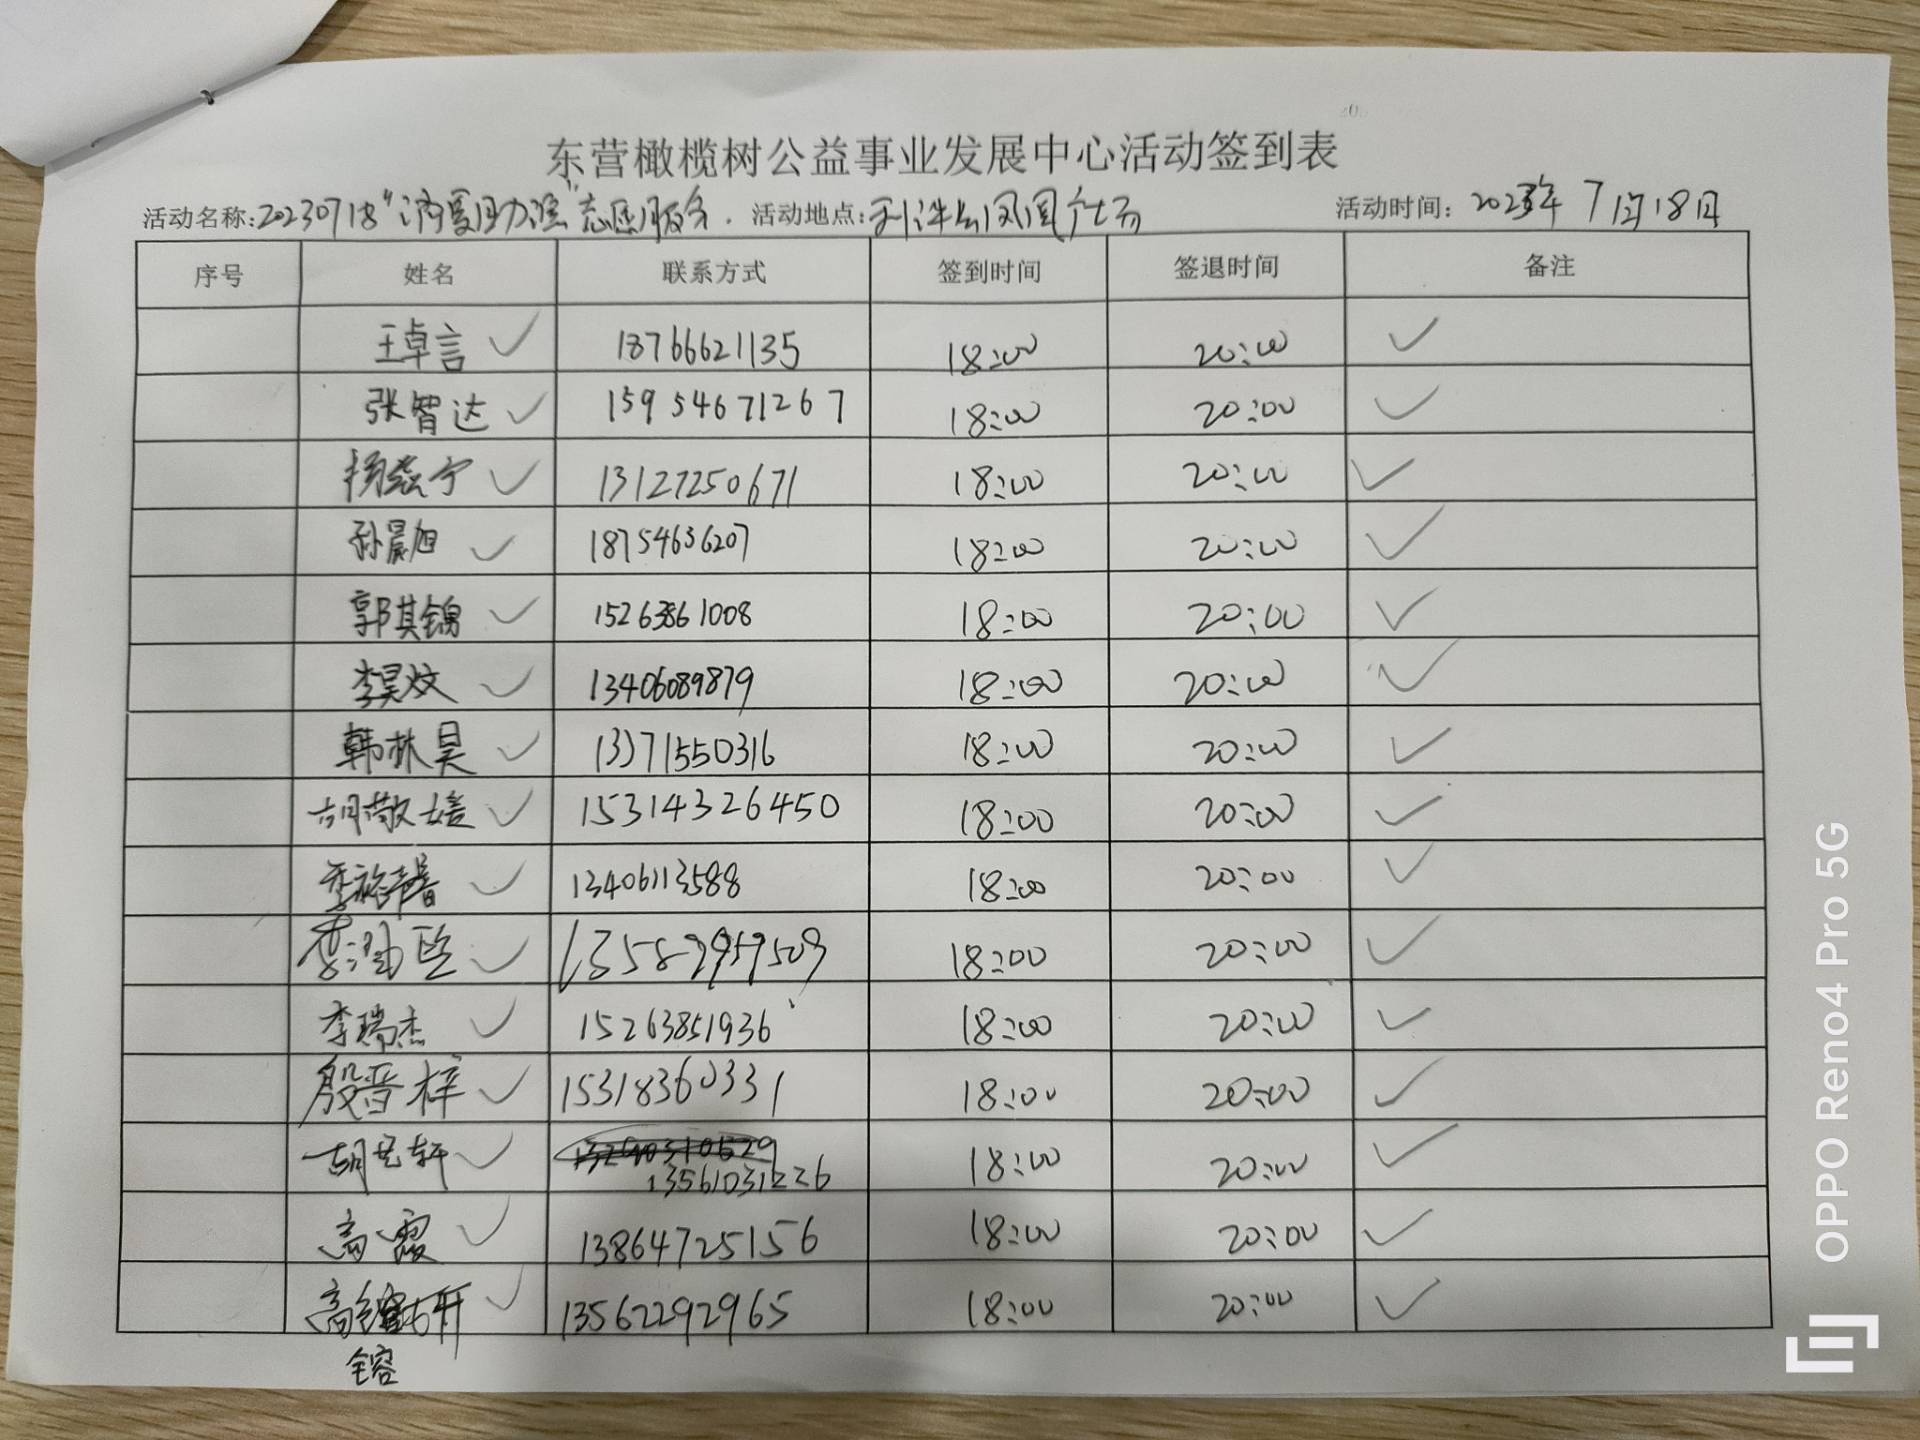 东营橄榄树公益事业发展中心活动签到表
活动名称:20230718"消夏助渔"志愿服务. 活动地点:利津县凤凰广场 活动时间: 2023年7月18日
序号 姓名 联系方式 签到时间 签退时间 备注
王卓言 ✓ 18766621135 18:00 20:00 ✓
张智达 ✓ 15954671267 18:00 20:00 ✓
杨兹宁 ✓ 13127250671 18:00 20:00 ✓
孙晨旭 ✓ 18754636207 18:00 20:00 ✓
郭其锦 ✓ 15263861008 18:00 20:00 ✓
李昊炆 ✓ 13406089879 18:00 20:00 ✓
韩林昊 ✓ 13371550316 18:00 20:00 ✓
胡敬媛 ✓ 15314326450 18:00 20:00 ✓
✓ 13406113588 18:00 20:00 ✓
✓ 13589959509 18:00 20:00 ✓
李瑞杰 ✓ 15263851936 18:00 20:00 ✓
殷晋梓 ✓ 15318360331 18:00 20:00 ✓
胡艺轩 ✓ 18:00 20:00 ✓
13561031226
高霞 ✓ 13864725156 18:00 20:00 ✓
高 ✓ 13562292965 18:00 20:00 ✓
镕
OPPO Reno4 Pro 5G